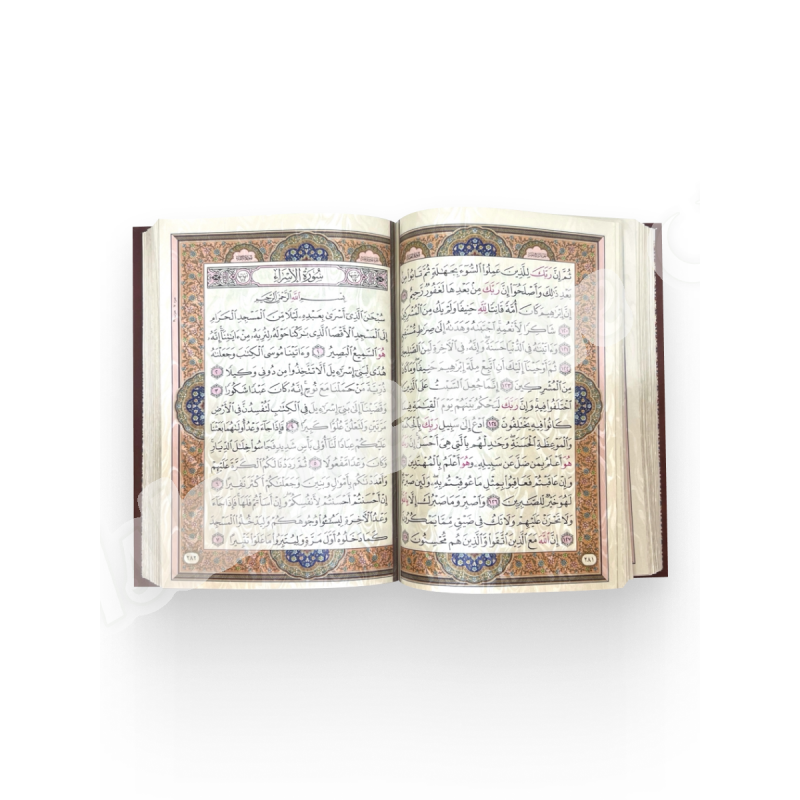 ثُمَّ إِنَّ رَبَّكَ لِلَّذِينَ عَمِلُوا۟ ٱلسُّوٓءَ بِجَهَٰلَةٍ ثُمَّ تَابُوا۟ مِنۢ
بَعْدِ ذَٰلِكَ وَأَصْلَحُوٓا۟ إِنَّ رَبَّكَ مِنۢ بَعْدِهَا لَغَفُورٌ رَّحِيمٌ ١١٩
إِنَّ إِبْرَٰهِيمَ كَانَ أُمَّةً قَانِتًا لِّلَّهِ حَنِيفًا وَلَمْ يَكُ مِنَ ٱلْمُشْرِكِينَ
١٢٠ شَاكِرًا لِّأَنْعُمِهِ ٱجْتَبَىٰهُ وَهَدَىٰهُ إِلَىٰ صِرَٰطٍ مُّسْتَقِيمٍ
١٢١ وَءَاتَيْنَٰهُ فِى ٱلدُّنْيَا حَسَنَةً وَإِنَّهُۥ فِى ٱلْءَاخِرَةِ لَمِنَ ٱلصَّٰلِحِينَ
١٢٢ ثُمَّ أَوْحَيْنَآ إِلَيْكَ أَنِ ٱتَّبِعْ مِلَّةَ إِبْرَٰهِيمَ حَنِيفًا وَمَا كَانَ
مِنَ ٱلْمُشْرِكِينَ ١٢٣ إِنَّمَا جُعِلَ ٱلسَّبْتُ عَلَى ٱلَّذِينَ
ٱخْتَلَفُوا۟ فِيهِ وَإِنَّ رَبَّكَ لَيَحْكُمُ بَيْنَهُمْ يَوْمَ ٱلْقِيَٰمَةِ فِيمَا
كَانُوا۟ فِيهِ يَخْتَلِفُونَ ١٢٤ ٱدْعُ إِلَىٰ سَبِيلِ رَبِّكَ بِٱلْحِكْمَةِ
وَٱلْمَوْعِظَةِ ٱلْحَسَنَةِ وَجَٰدِلْهُم بِٱلَّتِى هِىَ أَحْسَنُ إِنَّ رَبَّكَ
هُوَ أَعْلَمُ بِمَن ضَلَّ عَن سَبِيلِهِۦ وَهُوَ أَعْلَمُ بِٱلْمُهْتَدِينَ ١٢٥
وَإِنْ عَاقَبْتُمْ فَعَاقِبُوا۟ بِمِثْلِ مَا عُوقِبْتُم بِهِۦ وَلَئِن صَبَرْتُمْ
لَهُوَ خَيْرٌ لِّلصَّٰبِرِينَ ١٢٦ وَٱصْبِرْ وَمَا صَبْرُكَ إِلَّا بِٱللَّهِ
وَلَا تَحْزَنْ عَلَيْهِمْ وَلَا تَكُ فِى ضَيْقٍ مِّمَّا يَمْكُرُونَ ١٢٧
إِنَّ ٱللَّهَ مَعَ ٱلَّذِينَ ٱتَّقَوا۟ وَّٱلَّذِينَ هُم مُّحْسِنُونَ ١٢٨
٢٨١
سُورَةُ الإِسْرَاءِ
بِسْمِ ٱللَّهِ ٱلرَّحْمَٰنِ ٱلرَّحِيمِ
سُبْحَٰنَ ٱلَّذِىٓ أَسْرَىٰ بِعَبْدِهِۦ لَيْلًا مِّنَ ٱلْمَسْجِدِ ٱلْحَرَامِ
إِلَى ٱلْمَسْجِدِ ٱلْأَقْصَا ٱلَّذِى بَٰرَكْنَا حَوْلَهُۥ لِنُرِيَهُۥ مِنْ ءَايَٰتِنَآ إِنَّهُۥ
هُوَ ٱلسَّمِيعُ ٱلْبَصِيرُ ١ وَءَاتَيْنَا مُوسَى ٱلْكِتَٰبَ وَجَعَلْنَٰهُ
هُدًى لِّبَنِىٓ إِسْرَٰٓءِيلَ أَلَّا تَتَّخِذُوا۟ مِن دُونِى وَكِيلًا ٢
ذُرِّيَّةَ مَنْ حَمَلْنَا مَعَ نُوحٍ إِنَّهُۥ كَانَ عَبْدًا شَكُورًا ٣
وَقَضَيْنَآ إِلَىٰ بَنِىٓ إِسْرَٰٓءِيلَ فِى ٱلْكِتَٰبِ لَتُفْسِدُنَّ فِى ٱلْأَرْضِ
مَرَّتَيْنِ وَلَتَعْلُنَّ عُلُوًّا كَبِيرًا ٤ فَإِذَا جَآءَ وَعْدُ أُولَىٰهُمَا بَعَثْنَا
عَلَيْكُمْ عِبَادًا لَّنَآ أُو۟لِى بَأْسٍ شَدِيدٍ فَجَاسُوا۟ خِلَٰلَ ٱلدِّيَارِ
وَكَانَ وَعْدًا مَّفْعُولًا ٥ ثُمَّ رَدَدْنَا لَكُمُ ٱلْكَرَّةَ عَلَيْهِمْ
وَأَمْدَدْنَٰكُم بِأَمْوَٰلٍ وَبَنِينَ وَجَعَلْنَٰكُمْ أَكْثَرَ نَفِيرًا ٦
إِنْ أَحْسَنتُمْ أَحْسَنتُمْ لِأَنفُسِكُمْ وَإِنْ أَسَأْتُمْ فَلَهَا فَإِذَا جَآءَ
وَعْدُ ٱلْءَاخِرَةِ لِيَسُۥٓـُٔوا۟ وُجُوهَكُمْ وَلِيَدْخُلُوا۟ ٱلْمَسْجِدَ
كَمَا دَخَلُوهُ أَوَّلَ مَرَّةٍ وَلِيُتَبِّرُوا۟ مَا عَلَوْا۟ تَتْبِيرًا ٧
٢٨٢